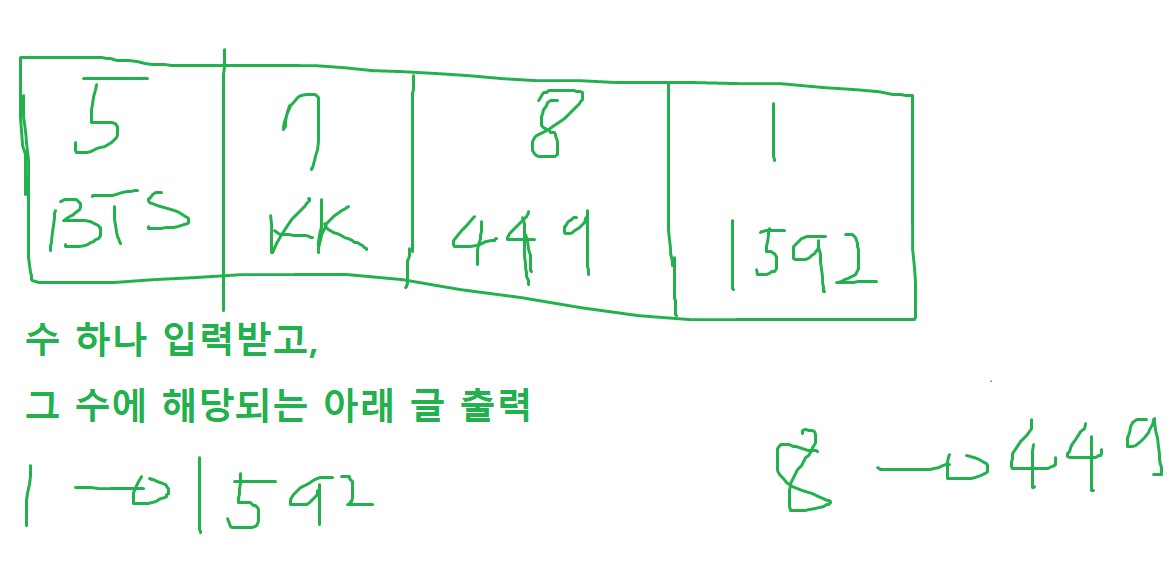 5 7 8 1
BTS KK 449 1592
수 하나 입력받고,
그 수에 해당되는 아래 글 출력
1 → 1592
8 → 449